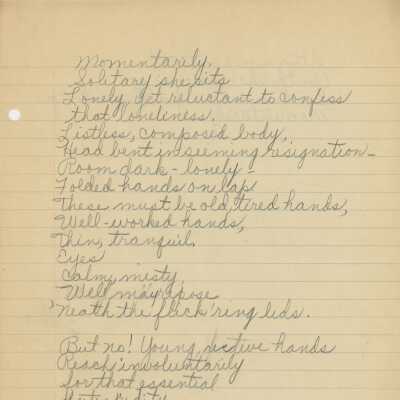 Momentarily,
Solitary she sits
Lonely, yet reluctant to confess
that loneliness.
Listless, composed body,
Head bent in seeming resignation-
Room dark - lonely -
Folded hands on lap
These must be old, tired hands,
Well-worked hands,
Thin, tranquil.
Eyes
calm, misty,
Well may repose
'Neath the flick'ring lids.
But no! Young, active hands
Reach involuntarily
for that essential